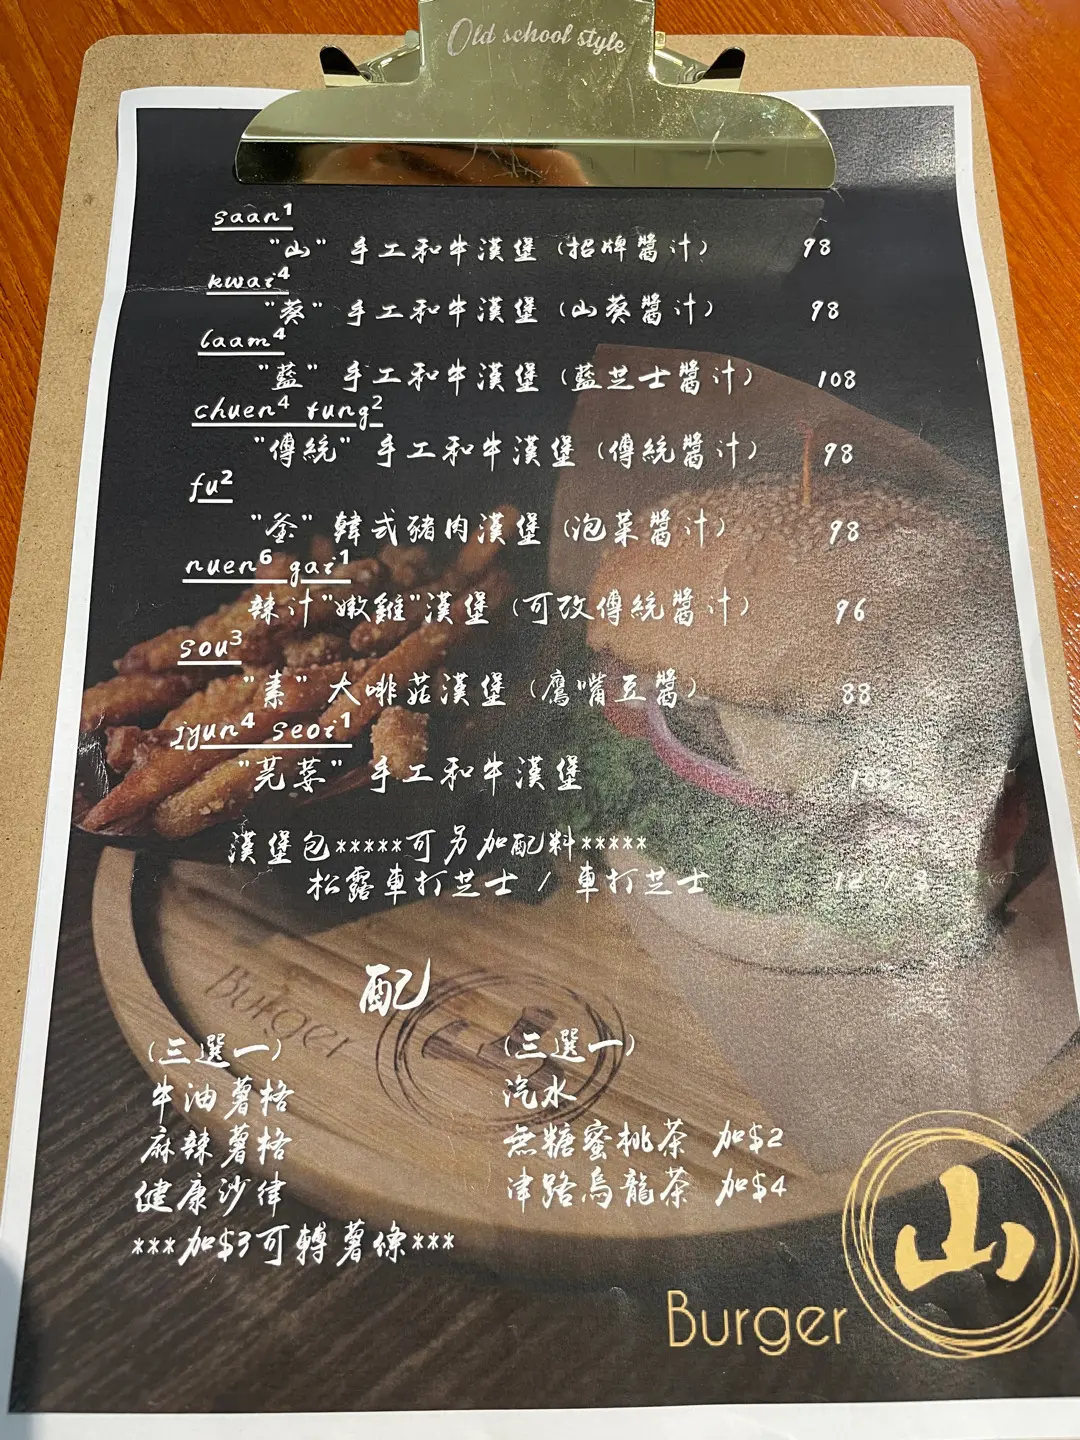 Old school style
saan¹
"山" 手工和牛漢堡 (招牌醬汁) 98
kwai⁴
"葵" 手工和牛漢堡 (山葵醬汁) 98
laam⁴
"藍" 手工和牛漢堡 (藍芝士醬汁) 108
chuen⁴ tung²
"傳統" 手工和牛漢堡 (傳統醬汁) 98
fu²
"釜" 韓式豬肉漢堡 (泡菜醬汁) 98
nuen⁶ gai¹
辣汁"嫩雞"漢堡 (可改傳統醬汁) 96
sou³
"素" 大啡菇漢堡 (鷹嘴豆醬) 88
jyun⁴ seoi¹
"芫荽" 手工和牛漢堡
漢堡包*****可另加配料*****
松露車打芝士 / 車打芝士 12 / 8
配
(三選一)
牛油薯格
麻辣薯格
健康沙律
***加$3可轉薯條***
(三選一)
汽水
無糖蜜桃茶 加$2
津路烏龍茶 加$4
Burger 山
Burger 山